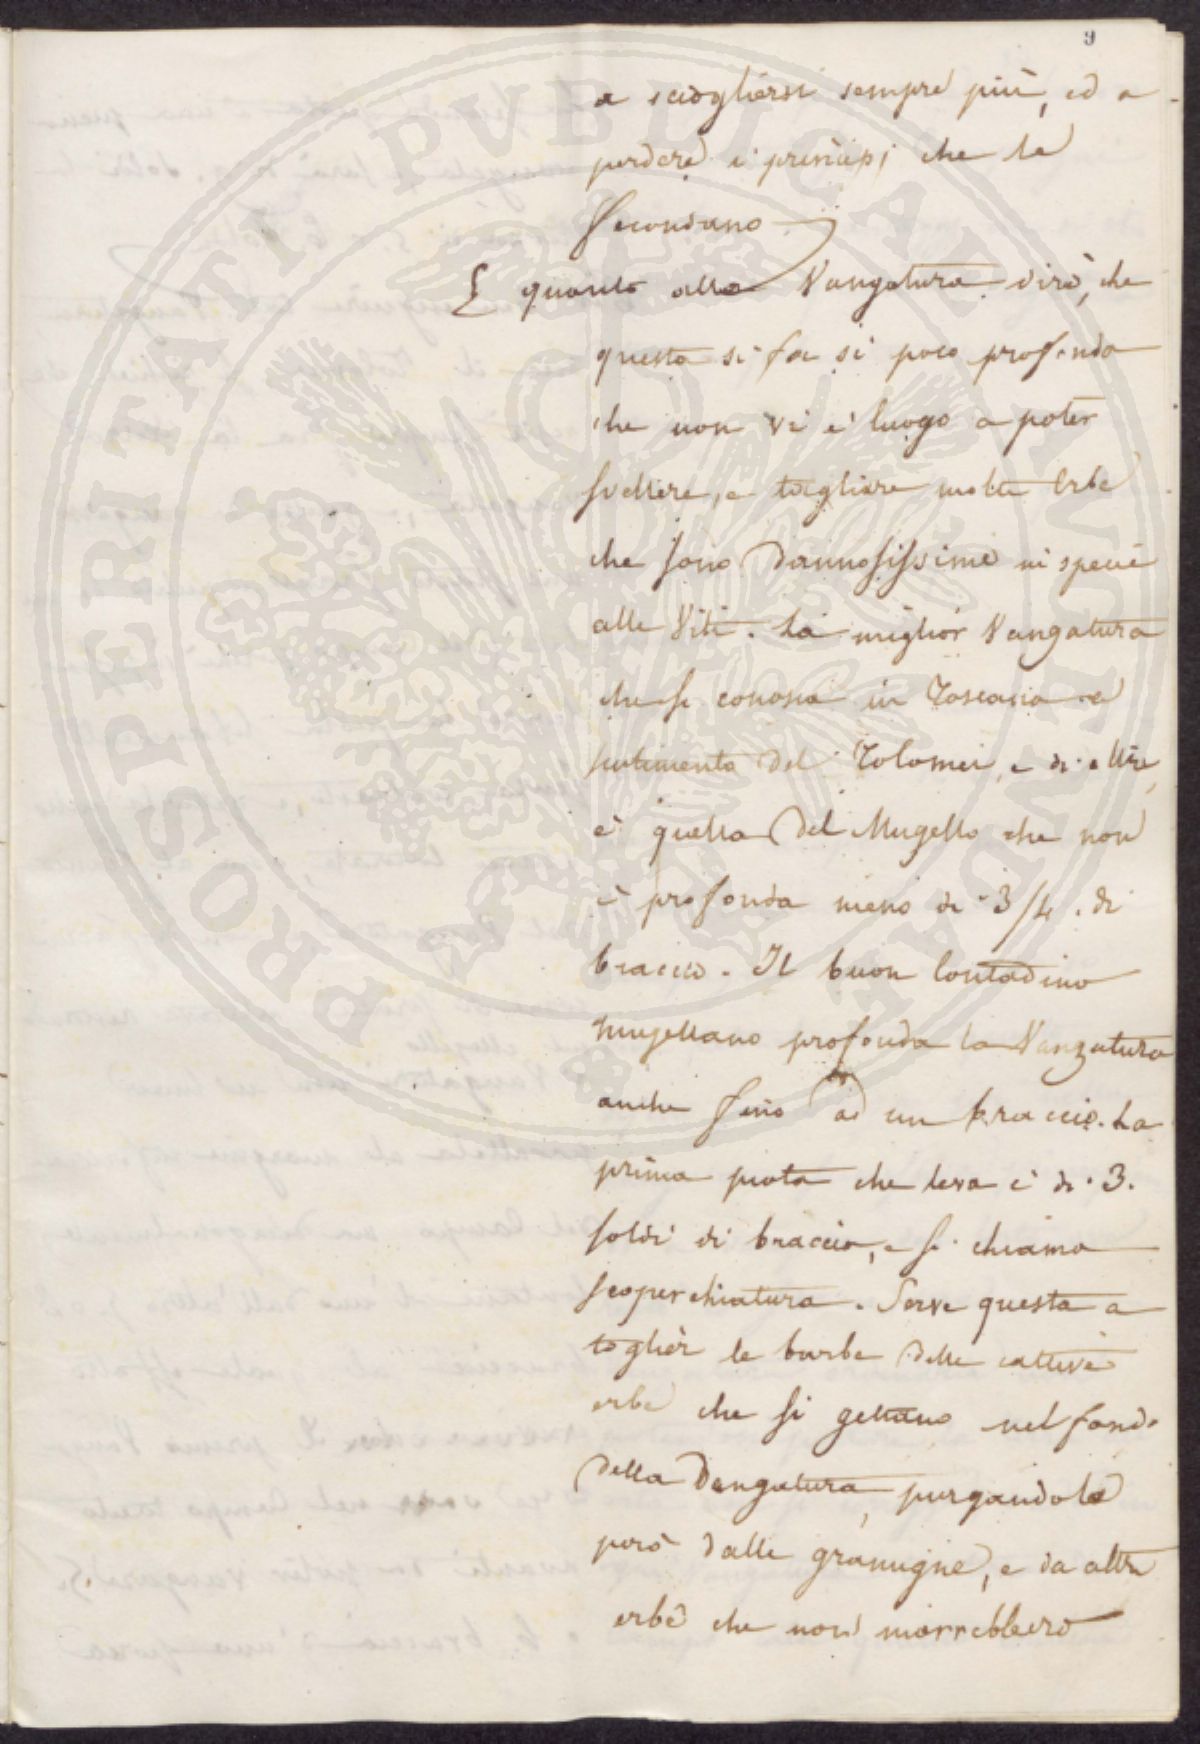 9
a sciogliersi sempre più, ed a
perdere i principj che la
secondano.
E quanto alla Vangatura dirò, che
questa si fa si poco profonda
che non vi è luogo a poter
svellere, e togliere molte Erbe
che sono dannosissime in specie
alle Viti. La miglior Vangatura
che si conosca in Toscana a
sentimento del Tolomei, e di altri,
è quella del Mugello che non
è profonda meno di 3/4. di
braccio. Il buon Contadino
mugellano profonda la Vangatura
anche fino ad un braccio. La
prima piota che leva è di 3.
soldi di braccio, e si chiama
scoperchiatura. Serve questa a
toglier le barbe delle cattive
erbe che si gettano nel fondo
della Vangatura, purgandola
però dalle gramigne, e da altre
erbe che non morrebbero
PROSPERITATI PUBLICAE AUGENDAE